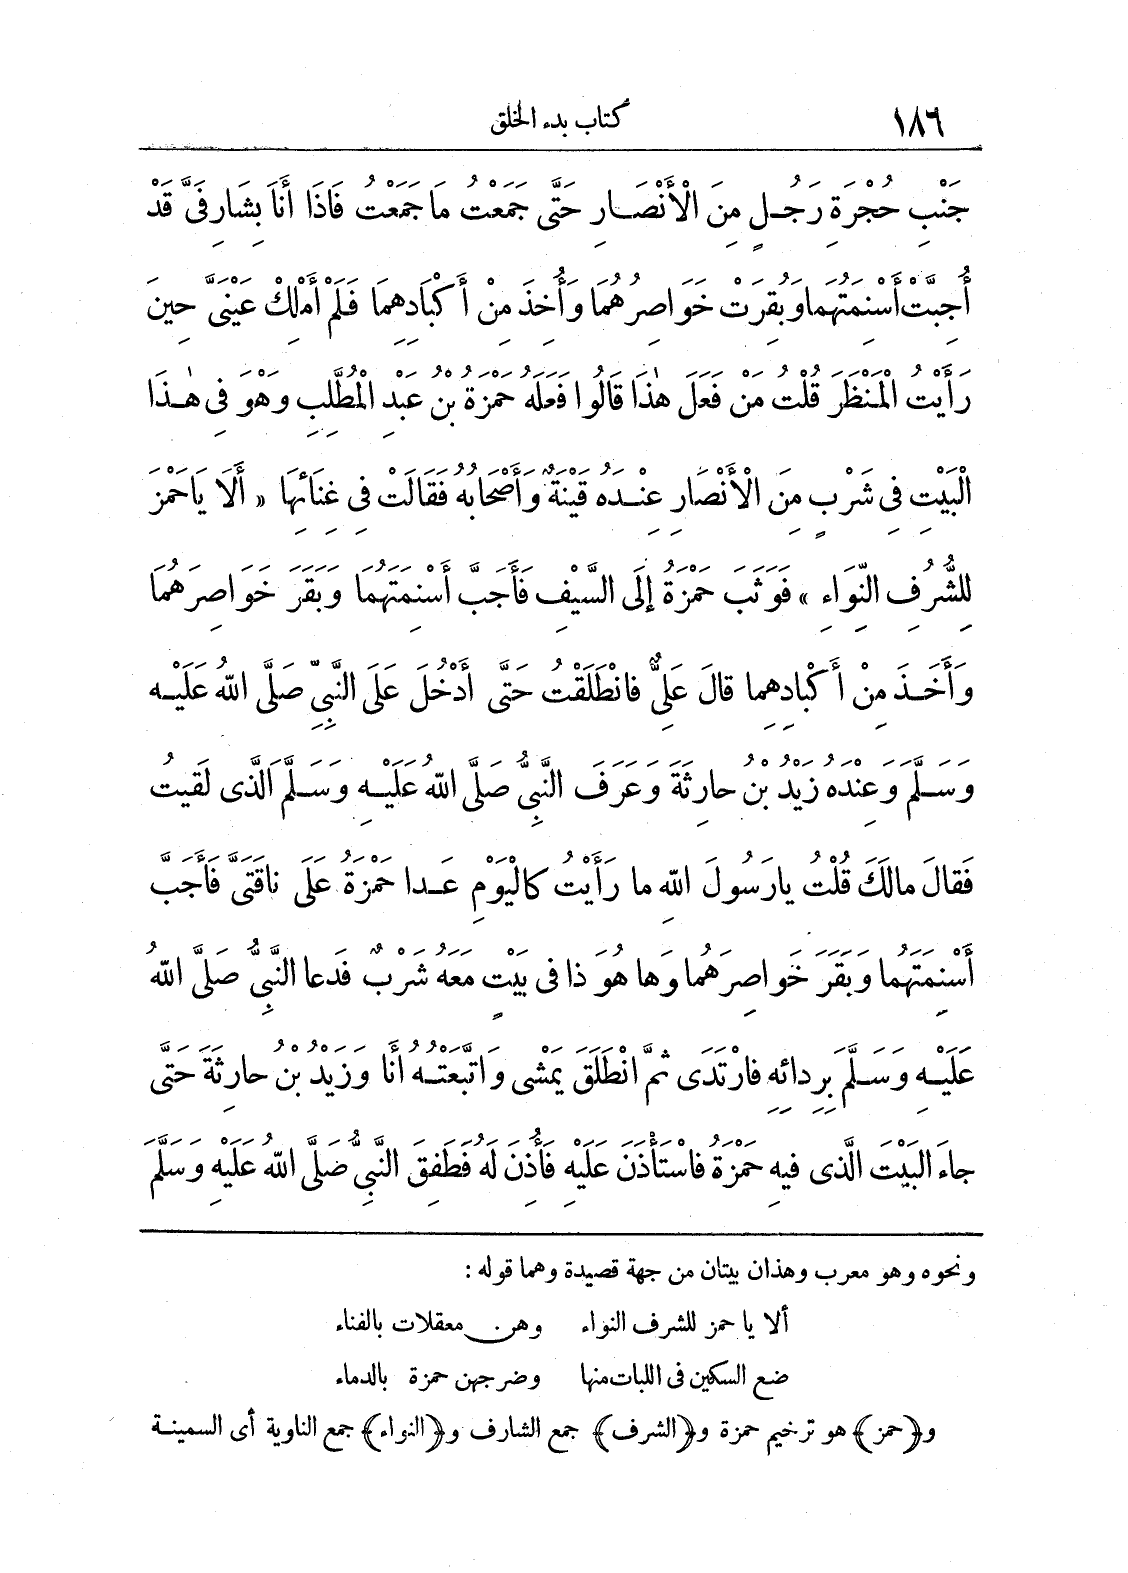 ١٨٦ كتاب بدء الخلق
جَنْبِ حُجْرَةِ رَجُلٍ مِنَ الْأَنْصَارِ حَتَّى جَمَعْتُ مَا جَمَعْتُ فَاذَا أَنَا بِشَارِفَىَّ قَدْ
أُجِبَّتْ أَسْنِمَتُهُمَا وَبُقِرَتْ خَوَاصِرُهُمَا وَأُخِذَ مِنْ أَكْبَادِهِمَا فَلَمْ أَمْلِكْ عَيْنَىَّ حِينَ
رَأَيْتُ الْمَنْظَرَ قُلْتُ مَنْ فَعَلَ هٰذَا قَالُوا فَعَلَهُ حَمْزَةُ بْنُ عَبْدِ الْمُطَّلِبِ وَهْوَ فِى هٰذَا
الْبَيْتِ فِى شَرْبٍ مِنَ الْأَنْصَارِ عِنْدَهُ قَيْنَةٌ وَأَصْحَابُهُ فَقَالَتْ فِى غِنَائِهَا « أَلَا يَا حَمْزَ
لِلشُّرُفِ النِّوَاءِ » فَوَثَبَ حَمْزَةُ إِلَى السَّيْفِ فَأَجَبَّ أَسْنِمَتَهُمَا وَبَقَرَ خَوَاصِرَهُمَا
وَأَخَذَ مِنْ أَكْبَادِهِمَا قَالَ عَلِىٌّ فَانْطَلَقْتُ حَتَّى أَدْخُلَ عَلَى النَّبِىِّ صَلَّى اللّٰهُ عَلَيْهِ
وَسَلَّمَ وَعِنْدَهُ زَيْدُ بْنُ حَارِثَةَ وَعَرَفَ النَّبِىُّ صَلَّى اللّٰهُ عَلَيْهِ وَسَلَّمَ الَّذِى لَقِيتُ
فَقَالَ مَالَكَ قُلْتُ يَارَسُولَ اللّٰهِ مَا رَأَيْتُ كَالْيَوْمِ عَدَا حَمْزَةُ عَلَى نَاقَتَىَّ فَأَجَبَّ
أَسْنِمَتَهُمَا وَبَقَرَ خَوَاصِرَهُمَا وَهَا هُوَ ذَا فِى بَيْتٍ مَعَهُ شَرْبٌ فَدَعَا النَّبِىُّ صَلَّى اللّٰهُ
عَلَيْهِ وَسَلَّمَ بِرِدَائِهِ فَارْتَدَى ثُمَّ انْطَلَقَ يَمْشِى وَاتَّبَعْتُهُ أَنَا وَزَيْدُ بْنُ حَارِثَةَ حَتَّى
جَاءَ الْبَيْتَ الَّذِى فِيهِ حَمْزَةُ فَاسْتَأْذَنَ عَلَيْهِ فَأُذِنَ لَهُ فَطَفِقَ النَّبِىُّ صَلَّى اللّٰهُ عَلَيْهِ وَسَلَّمَ
ونحوه وهو معرب وهذان بيتان من جهة قصيدة وهما قوله :
ألا يا حمز للشرف النواء وهن معقلات بالفناء
ضع السكين فى اللبات منها وضرجهن حمزة بالدماء
و﴿حمز﴾ هو ترخيم حمزة و﴿الشرف﴾ جمع الشارف و﴿النواء﴾ جمع الناوية أى السمينة